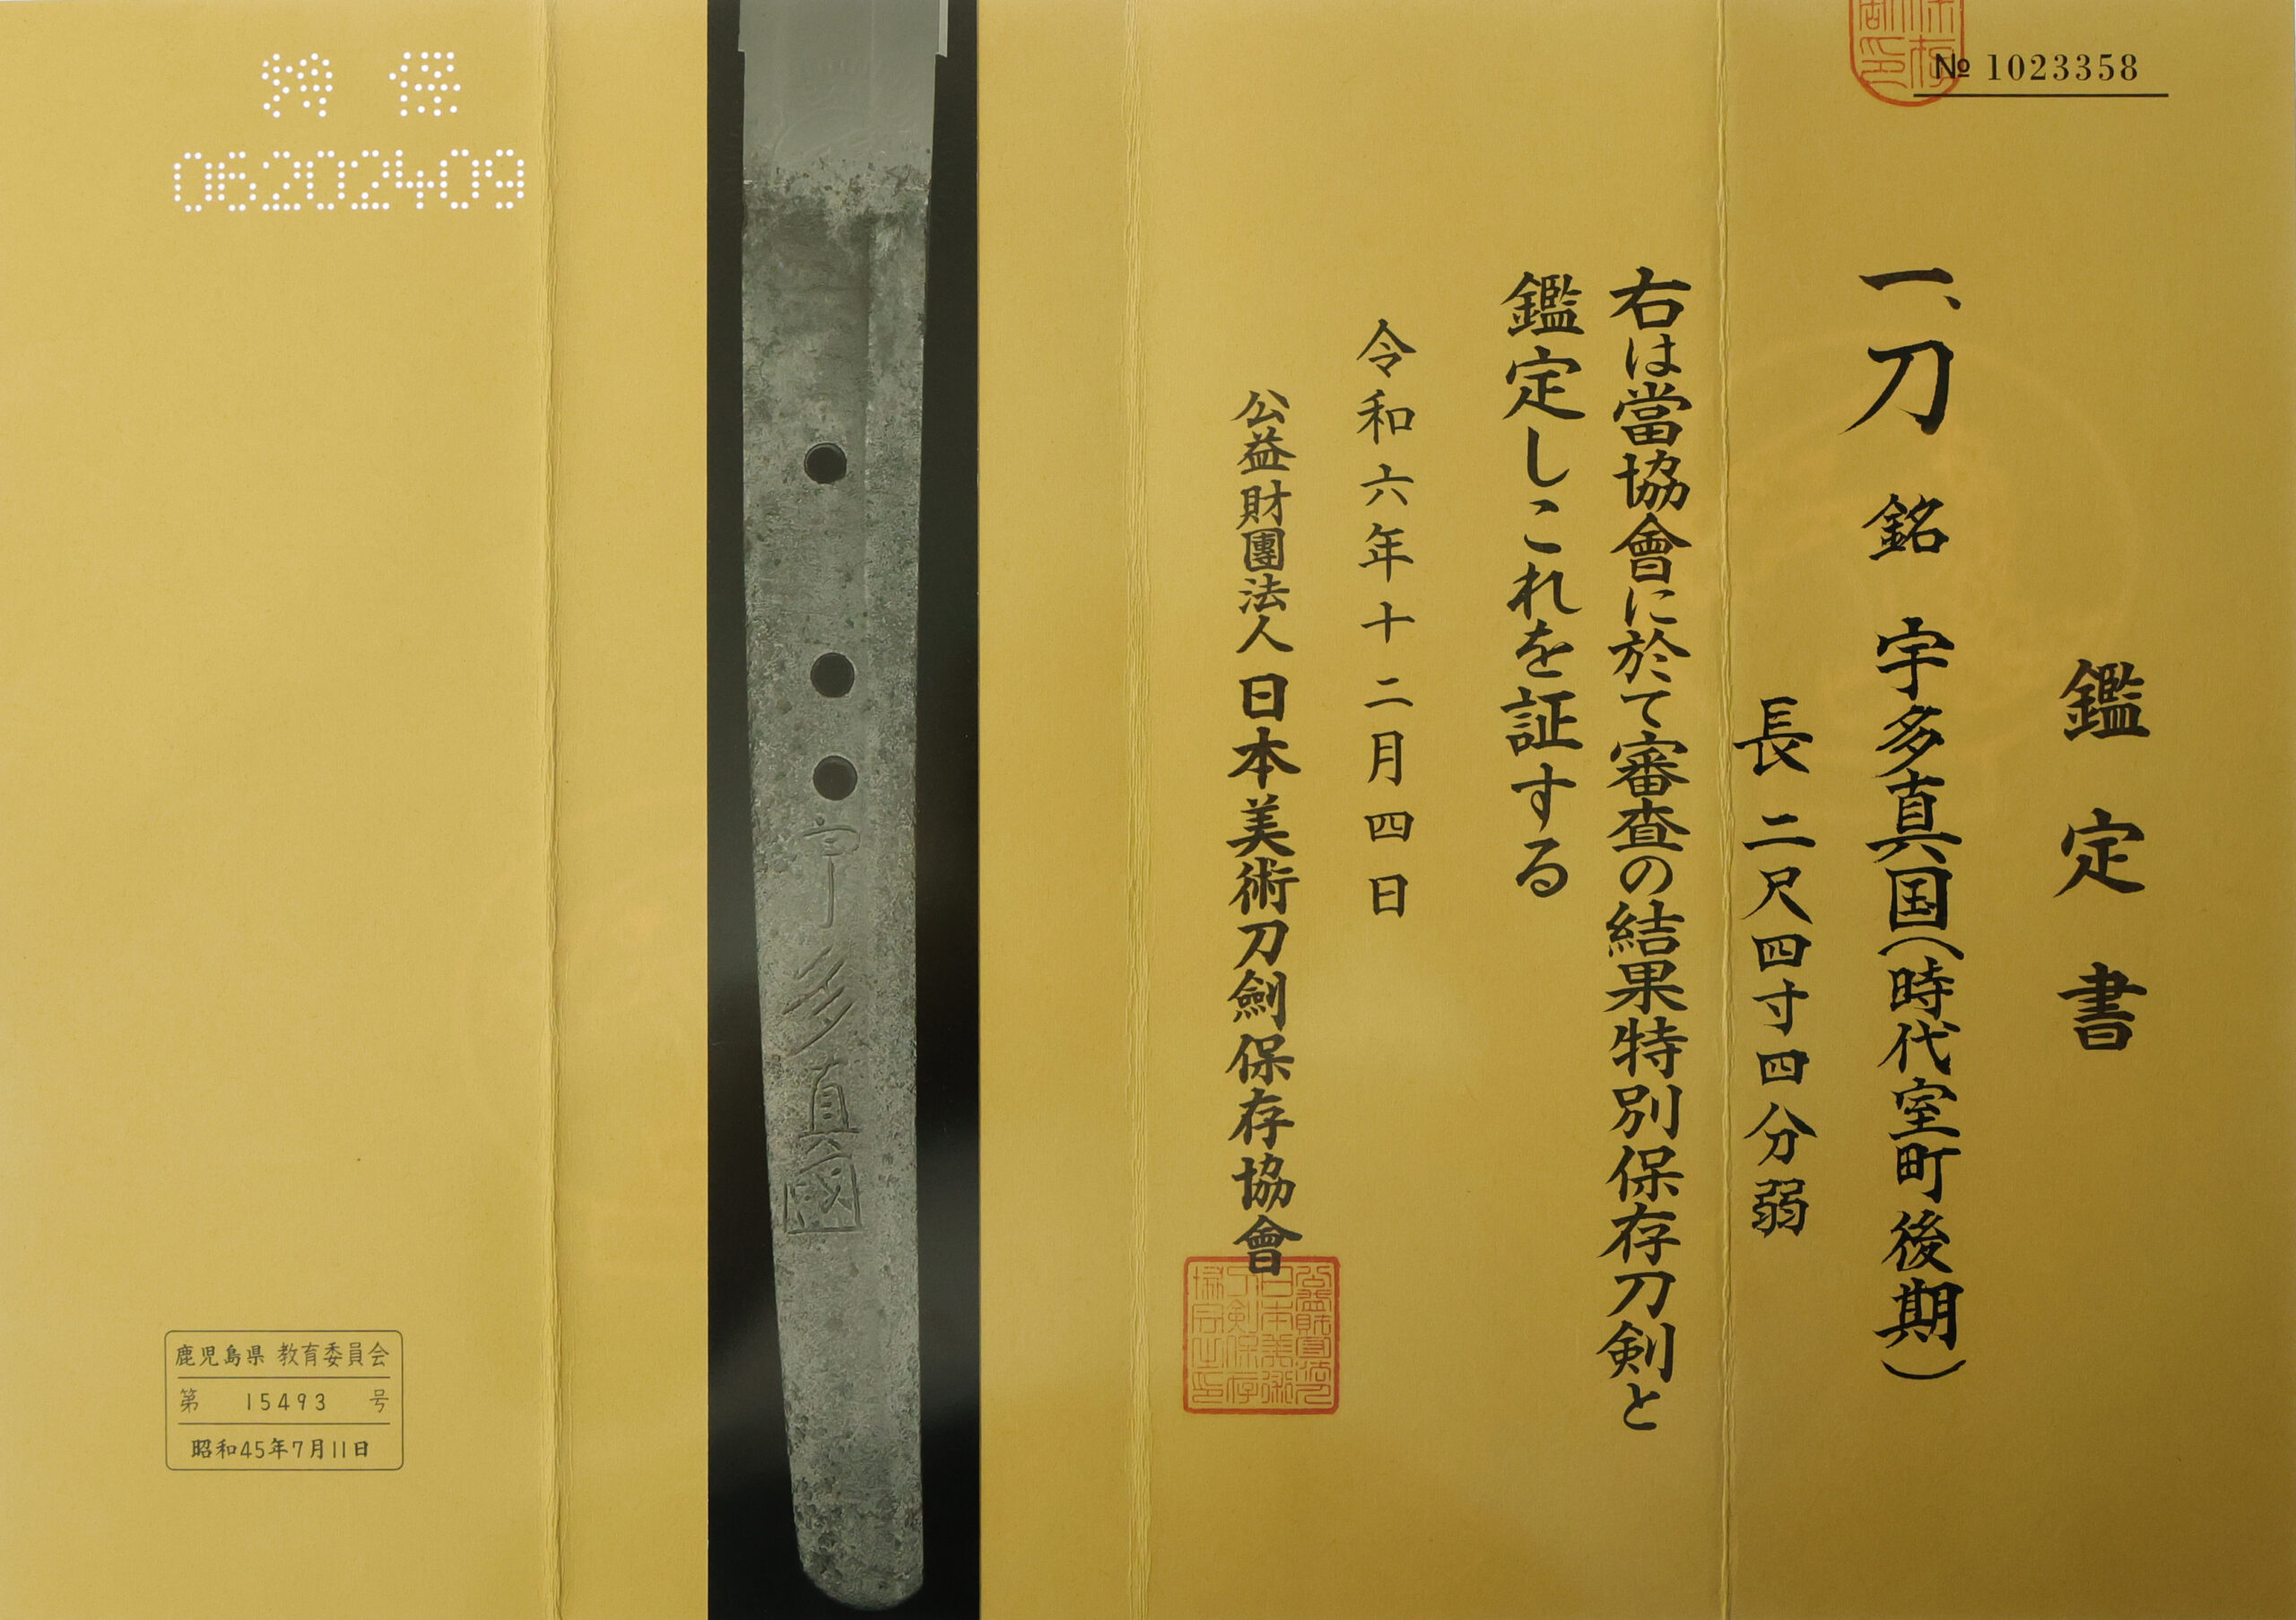 № 1023358
鑑定書
一、刀 銘 宇多真国(時代室町後期)
長二尺四寸四分弱
右は當協會に於て審査の結果特別保存刀剣と
鑑定しこれを証する
令和六年十二月四日
公益財團法人 日本美術刀劍保存協會
宇多真國
特保
06202409
鹿児島県 教育委員会
第 15493 号
昭和45年7月11日